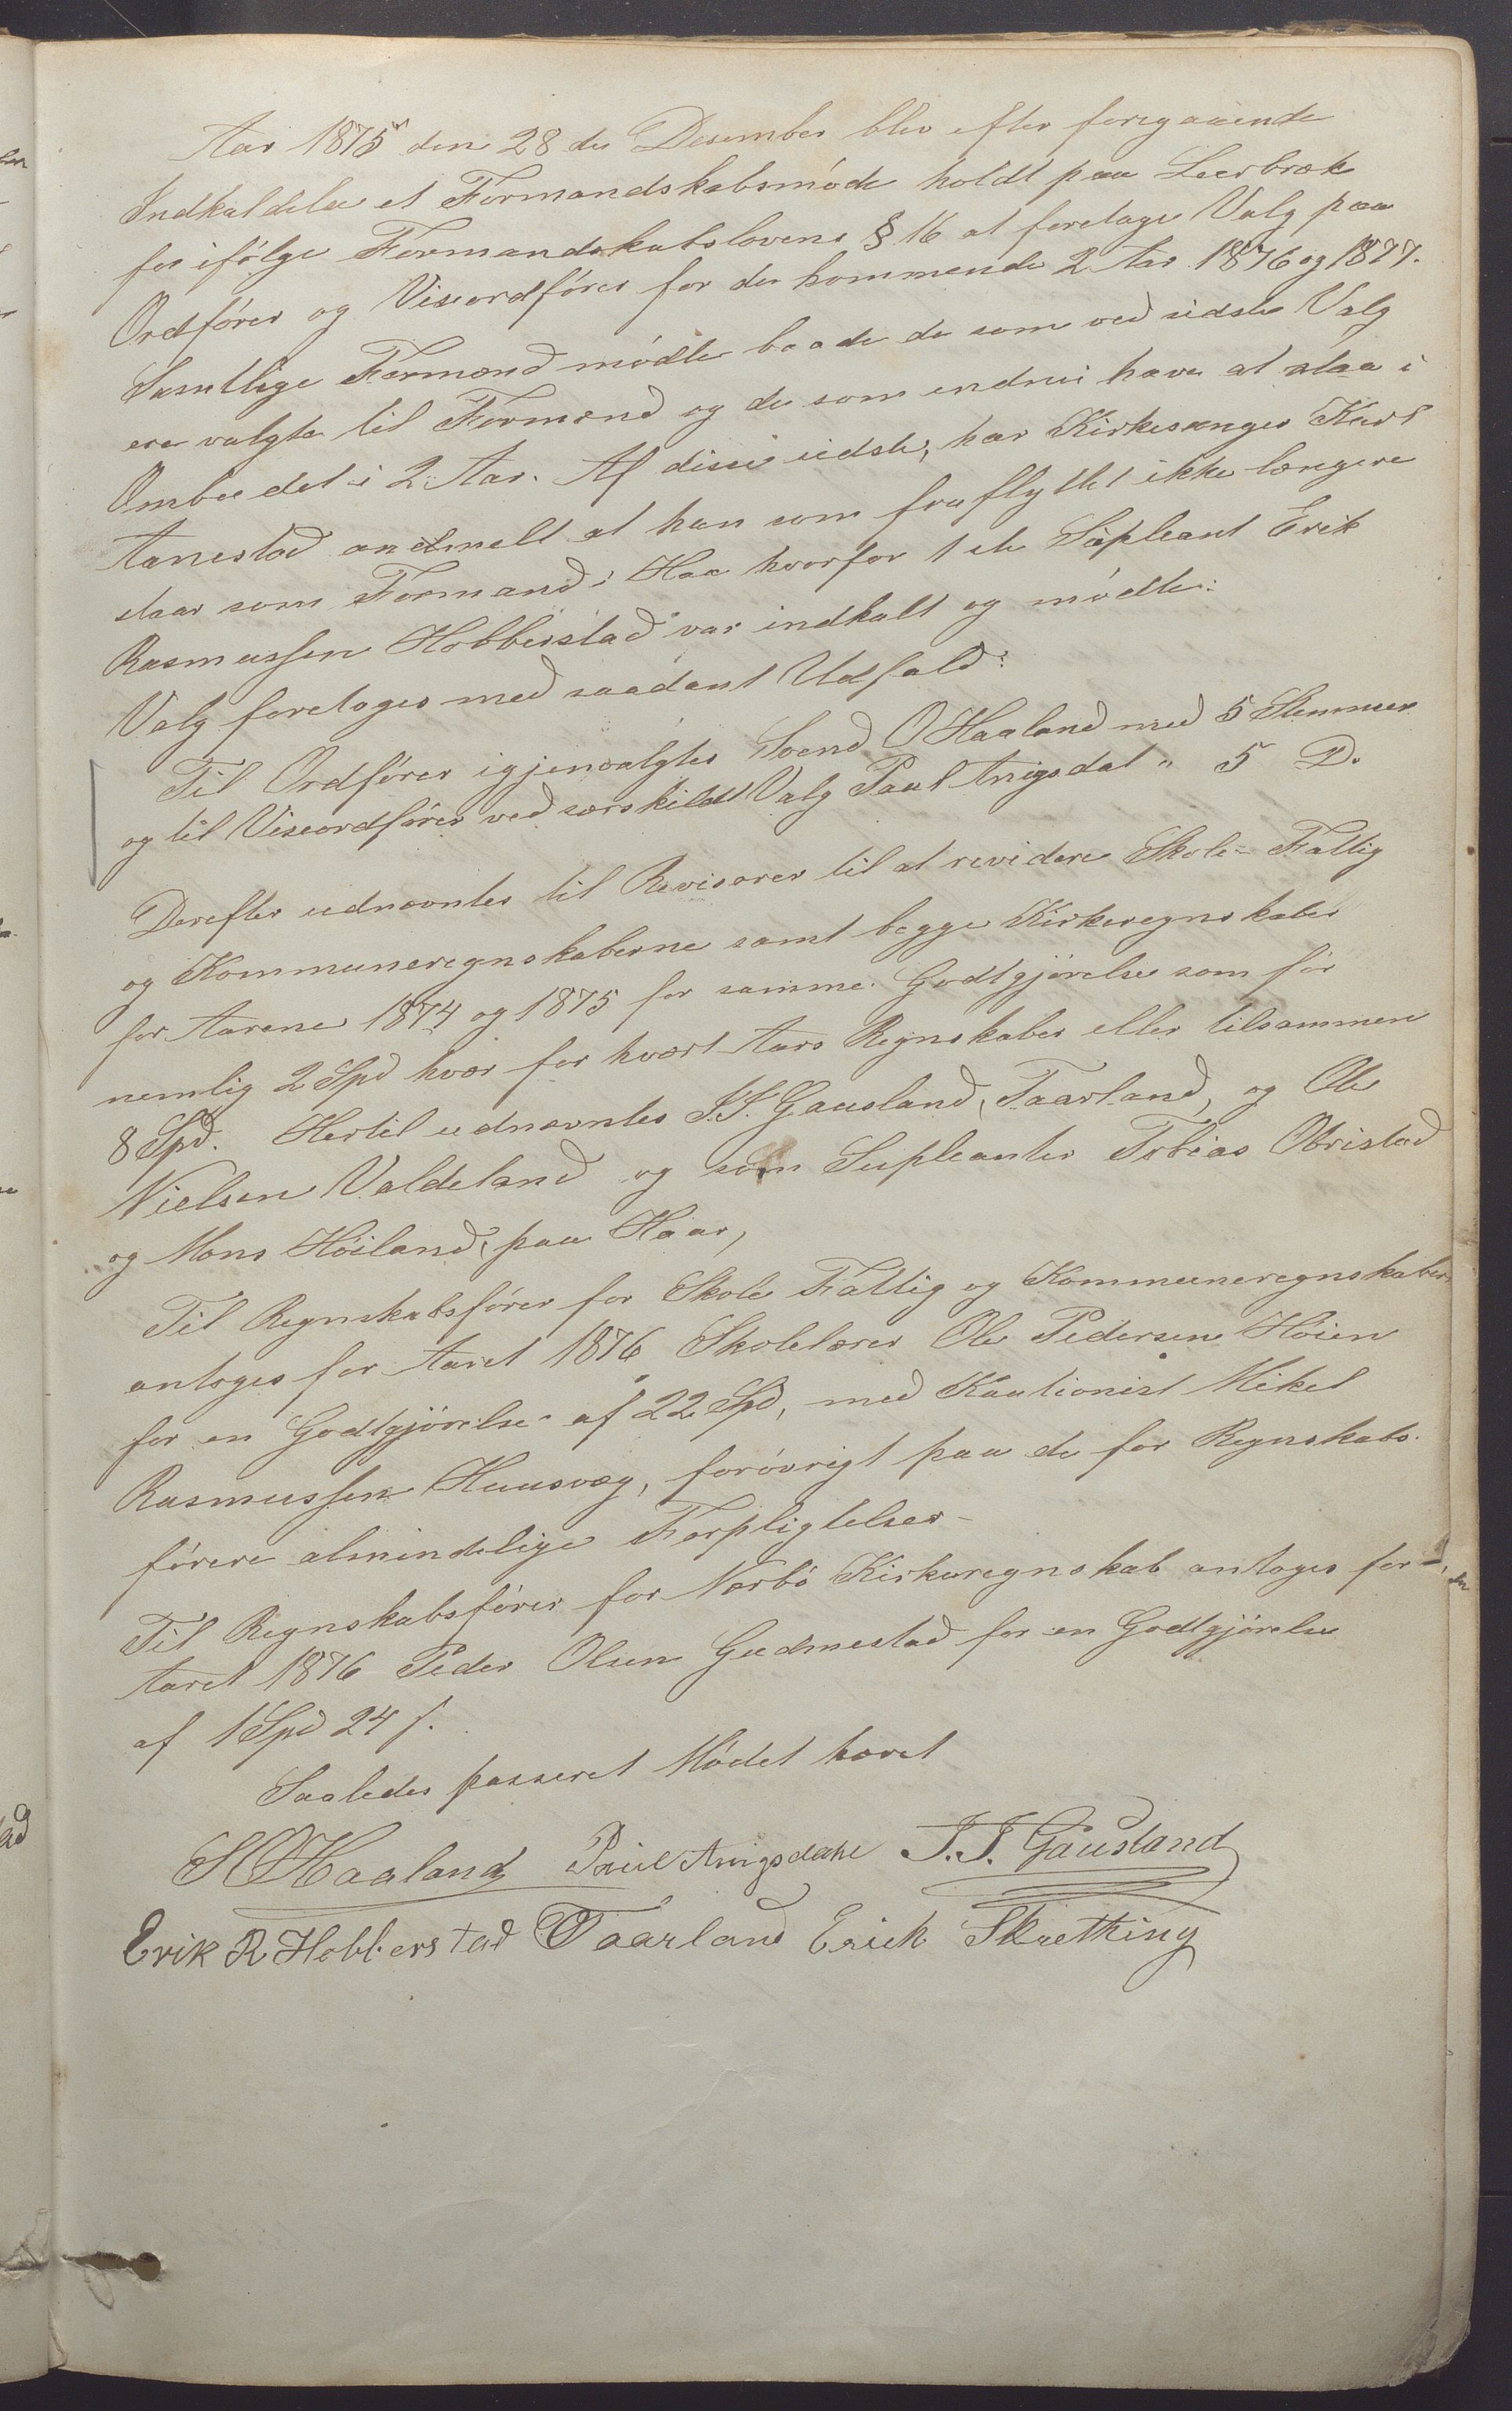 Aar 1875 den 28de Desember blev efter foregaaende
Indkaldelse et Formandskabsmøde holdt paa Leerbræk
for ifølge Formandskabslovens § 16 at foretage Valg paa
Ordfører og Viseordfører for de kommende 2 Aar 1876 og 1877.
Samtlige Formænd mødte baade de som ved sidste Valg
ere valgte til Formænd og de som endnu have at staa i
Ombudet i 2 Aar. Af disse sidste, har Kirkesanger Karl
Aanestad anmelt at han som fraflyttet ikke længere
staar som Formand i Haa hvorfor 1ste Supleant Erik
Rasmussen Hobberstad var indkalt og mødte.
Valg foretoges med saadant Udfald:
Til Ordfører igjenvalgtes Svend O Haaland med 5 Stemmer
og til Viseordfører ved særskildt Valg Paul Anigsdal " 5 D.
Derefter udnævntes til Revisorer til at revidere Skole- Fattig
og Kommuneregnskaberne samt begge Kirkeregnskaber
for Aarene 1874 og 1875 for samme Godtgjørelse som før
nemlig 2 Spd hver for hvert Aars Regnskaber eller tilsammen
8 Spd. Hertil udnævntes J.J. Gausland, Taarland, og Ole
Nielsen Valdeland og som Supleanter Tobias Obristad
og Mons Høiland, paa Haar,
Til Regnskabsfører for Skole Fattig og Kommuneregnskaber
antoges for Aaret 1876 Skolelærer Ole Pedersen Høien
for en Godtgjørelse af 22 Spd, med Kautionist Mikel
Rasmussen Huusvæg, forøvrigt paa de for Regnskabs-
førere almindelige Forpligtelser-
Til Regnskabsfører for Nærbø Kirkeregnskab antoges for
Aaret 1876 Peder Olsen Gudmestad for en Godtgjørelse
af 1 Spd 24 s.
Saaledes passeret Mødet hævet
S O Haaland Paul Anigsdahl J.J. Gausland
Erik R Hobberstad Taarland Erich Skretting